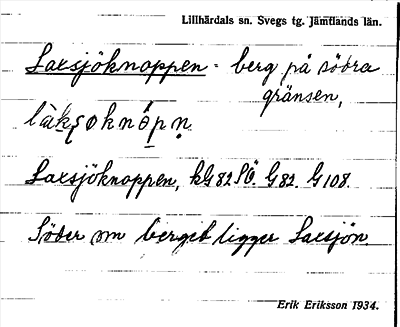 Lillhärdals sn. Svegs tg. Jämtlands län.
Laxsjöknoppen - berg på södra
gränsen,
Laxsjöknoppen, kG82SÖ. G82. G108.
Söder om berget ligger Laxsjön
Erik Eriksson 1934.